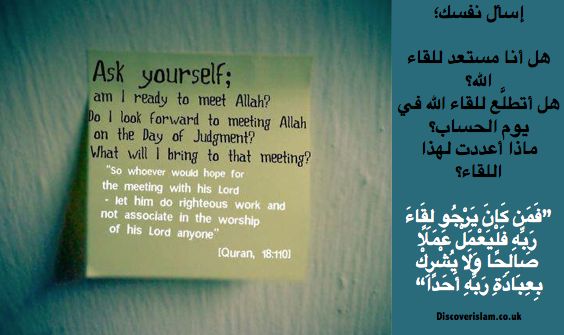 Ask yourself;
am I ready to meet Allah?
Do I look forward to meeting Allah
on the Day of Judgment?
What will I bring to that meeting?
"So whoever would hope for
the meeting with his Lord
- let him do righteous work and
not associate in the worship
of his Lord anyone"
[Quran, 18:110]
إسأل نفسك؛
هل أنا مستعد للقاء
الله؟
هل أتطلَّع للقاء الله في
يوم الحساب؟
ماذا أعددت لهذا
اللقاء؟
”فَمَن كَانَ يَرْجُو لِقَاءَ
رَبِّهِ فَلْيَعْمَلْ عَمَلًا
صَالِحًا وَلَا يُشْرِكْ
بِعِبَادَةِ رَبِّهِ أَحَدًا“
Discoverislam.co.uk